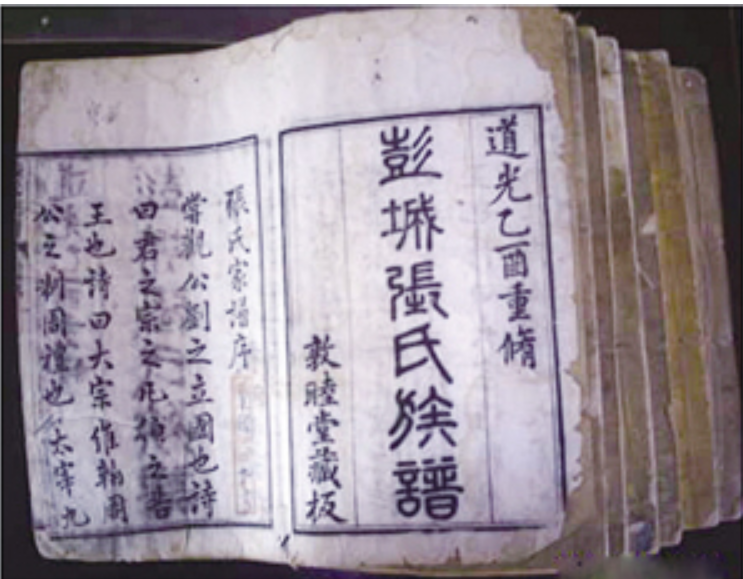 道光乙酉重脩
彭城張氏族譜
敦睦堂藏板
張氏家譜序
嘗觀公劉之立國也詩
曰君之宗之凡須之君
王也詩曰大宗維翰周
公之制周禮也太宰九